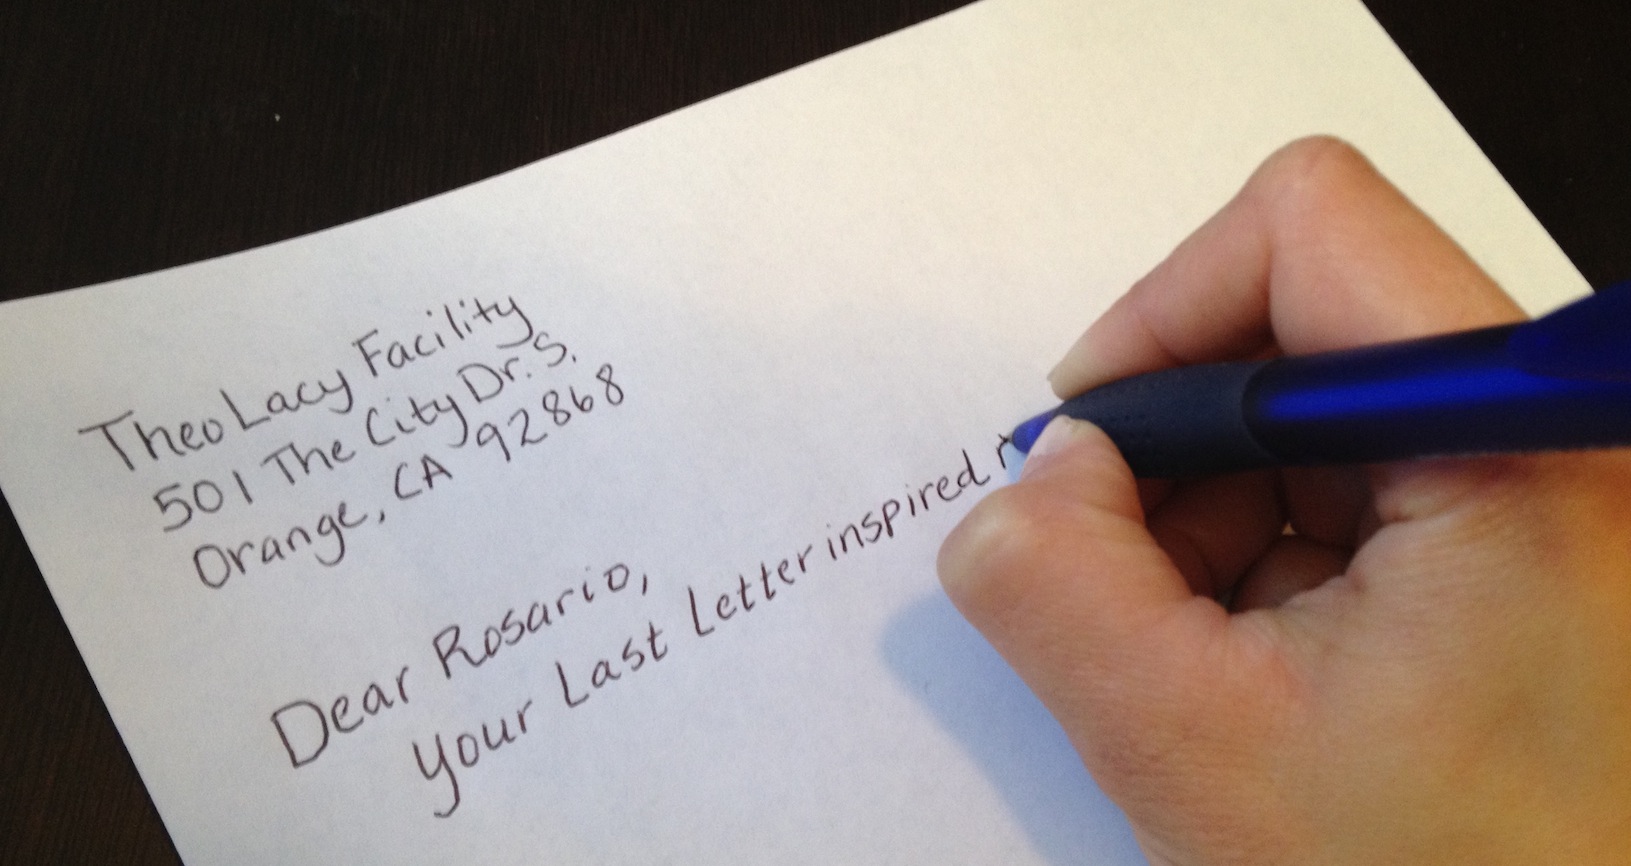 Theo Lacy Facility
501 The City Dr. S.
Orange, CA 92868
Dear Rosario,
Your Last Letter inspired